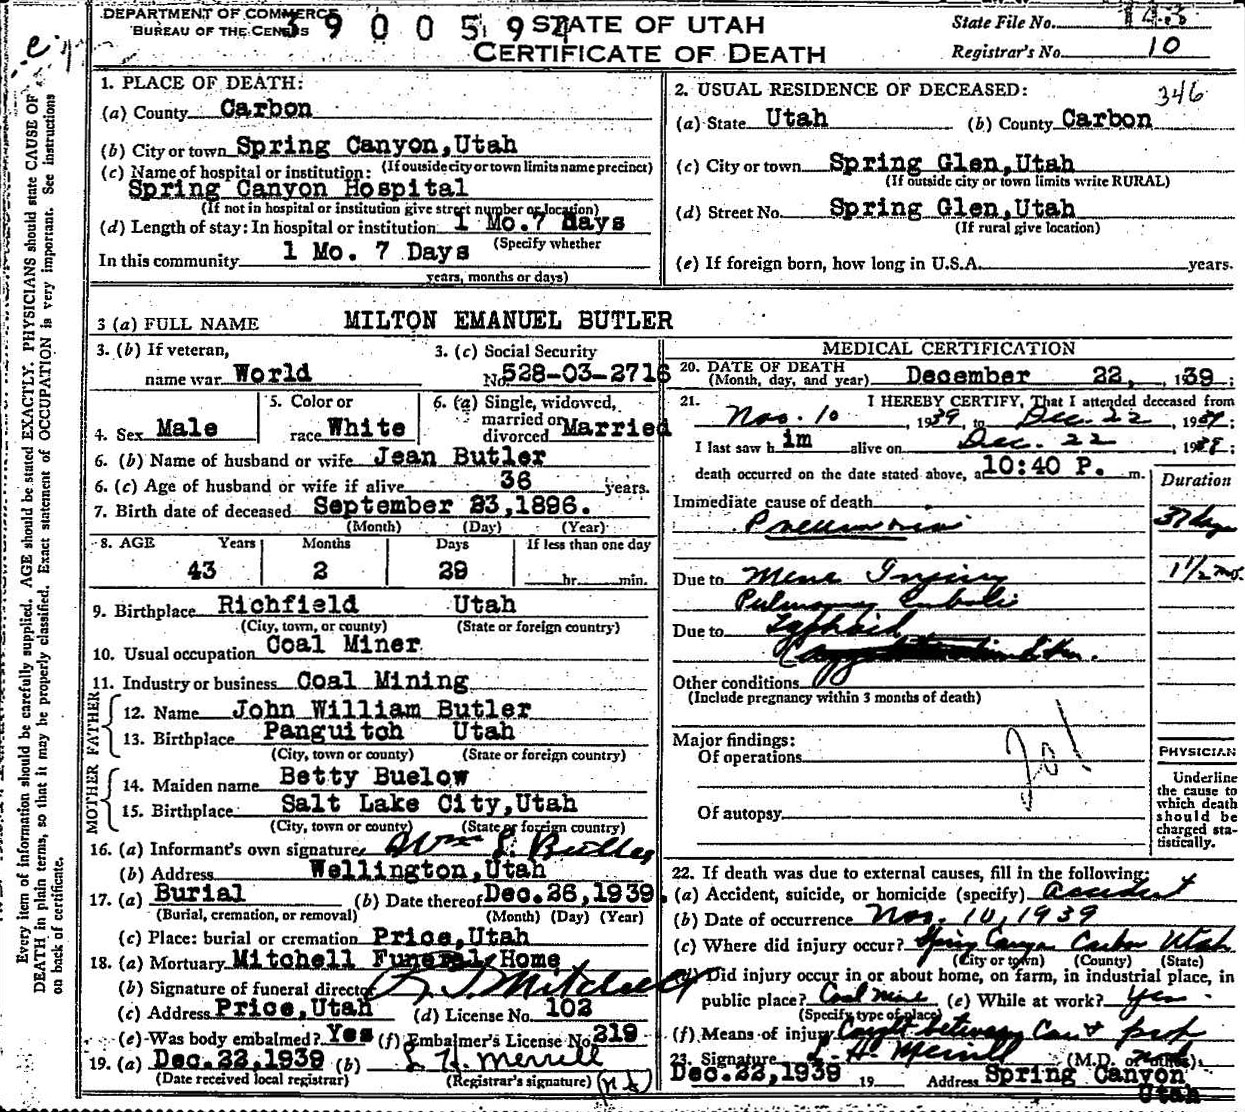 DEPARTMENT OF COMMERCE
BUREAU OF THE CENSUS
3900594
STATE OF UTAH
CERTIFICATE OF DEATH
State File No. 143
Registrar's No. 10
346
Every item of information should be carefully supplied. AGE should be stated EXACTLY. PHYSICIANS should state CAUSE OF
DEATH in plain terms, so that it may be properly classified. Exact statement of OCCUPATION is very important. See instructions
on back of certificate.
1. PLACE OF DEATH:
(a) County Carbon
(b) City or town Spring Canyon, Utah
(If outside city or town limits name precinct)
(c) Name of hospital or institution:
Spring Canyon Hospital
(If not in hospital or institution give street number or location)
(d) Length of stay: In hospital or institution 1 Mo. 7 Days
(Specify whether
In this community 1 Mo. 7 Days
years, months or days)
2. USUAL RESIDENCE OF DECEASED:
(a) State Utah (b) County Carbon
(c) City or town Spring Glen, Utah
(If outside city or town limits write RURAL)
(d) Street No. Spring Glen, Utah
(If rural give location)
(e) If foreign born, how long in U.S.A. years.
3 (a) FULL NAME MILTON EMANUEL BUTLER
3. (b) If veteran,
name war World
3. (c) Social Security
No. 528-03-2716
4. Sex Male
5. Color or
race White
6. (a) Single, widowed,
married or
divorced Married
6. (b) Name of husband or wife Jean Butler
6. (c) Age of husband or wife if alive 36 years.
7. Birth date of deceased September 23, 1896.
(Month) (Day) (Year)
8. AGE Years Months Days If less than one day
43 2 29 hr. min.
9. Birthplace Richfield Utah
(City, town, or county) (State or foreign country)
10. Usual occupation Coal Miner
11. Industry or business Coal Mining
FATHER
12. Name John William Butler
13. Birthplace Panguitch Utah
(City, town or county) (State or foreign country)
MOTHER
14. Maiden name Betty Buelow
15. Birthplace Salt Lake City, Utah
(City, town or county) (State or foreign country)
16. (a) Informant's own signature Wm L. Butler
(b) Address Wellington, Utah
17. (a) Burial (b) Date thereof Dec. 26, 1939.
(Burial, cremation, or removal) (Month) (Day) (Year)
(c) Place: burial or cremation Price, Utah
18. (a) Mortuary Mitchell Funeral Home
(b) Signature of funeral director Mitchell
(c) Address Price, Utah (d) License No. 102
(e) Was body embalmed? Yes (f) Embalmer's License No. 219
19. (a) Dec. 22, 1939 (b) L H. Merrill
(Date received local registrar) (Registrar's signature)
MEDICAL CERTIFICATION
20. DATE OF DEATH
(Month, day, and year) December 22, 1939;
21. I HEREBY CERTIFY, That I attended deceased from
Nov. 10, 1939, to Dec. 22, 1939;
I last saw h im alive on Dec. 22, 19
death occurred on the date stated above, at 10:40 P. m.
Duration
Immediate cause of death
Pneumonia 37 days
Due to Mine Injury 1 1/2 mo.
Pulmonary Emboli
Due to Typhoid
Other conditions
(Include pregnancy within 3 months of death)
Major findings:
Of operations
Of autopsy
PHYSICIAN
Underline
the cause to
which death
should be
charged sta-
tistically.
22. If death was due to external causes, fill in the following:
(a) Accident, suicide, or homicide (specify) Accident
(b) Date of occurrence Nov. 10, 1939
(c) Where did injury occur? Spring Canyon Carbon Utah
(City or town) (County) (State)
(d) Did injury occur in or about home, on farm, in industrial place, in
public place? Coal mine (e) While at work? Yes
(Specify type of place)
(f) Means of injury Caught between Car & prop
23. Signature L. H. Merrill (M.D. or other)
Dec. 22, 1939 19 Address Spring Canyon
Utah